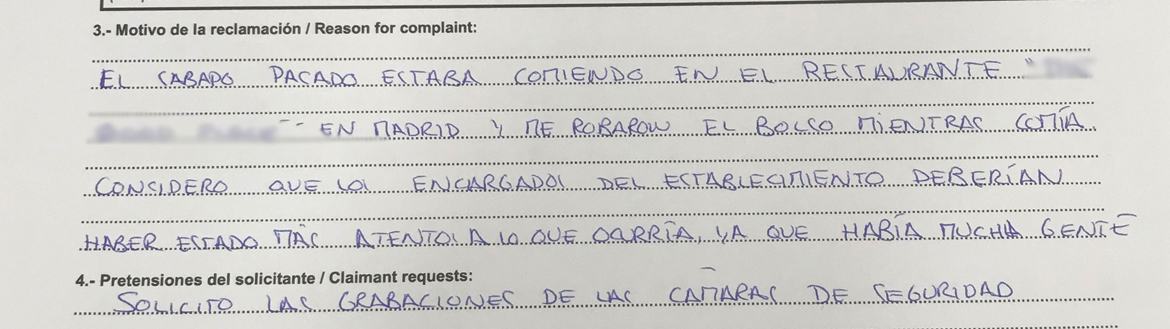 3.- Motivo de la reclamación / Reason for complaint:
EL SABADO PASADO ESTABA COMIENDO EN EL RESTAURANTE "
" EN MADRID Y ME ROBARON EL BOLSO MIENTRAS COMÍA.
CONSIDERO QUE LOS ENCARGADOS DEL ESTABLECIMIENTO DEBERÍAN
HABER ESTADO MÁS ATENTOS A LO QUE OCURRÍA, YA QUE HABÍA MUCHA GENTE
4.- Pretensiones del solicitante / Claimant requests:
SOLICITO LAS GRABACIONES DE LAS CÁMARAS DE SEGURIDAD